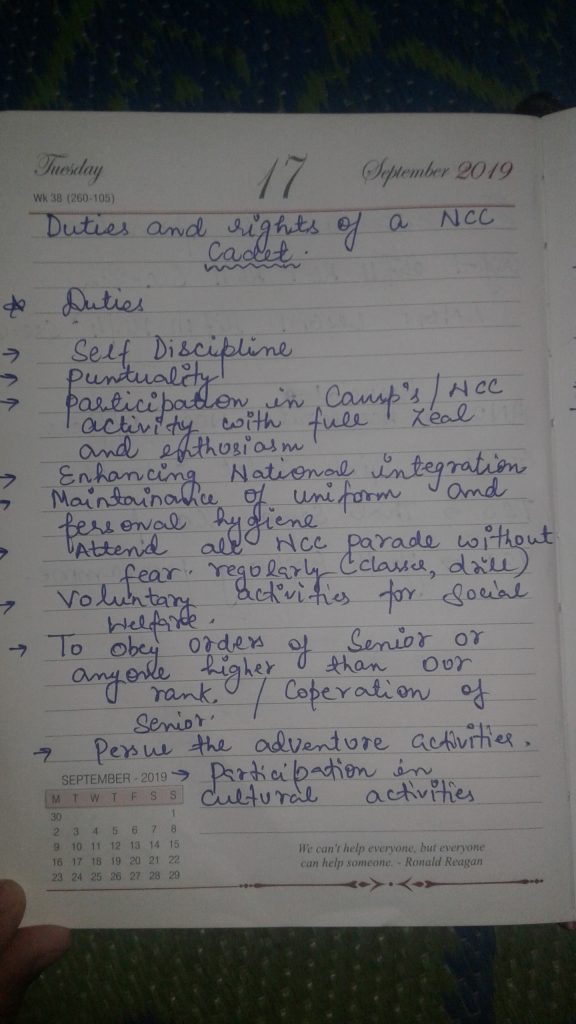 Tuesday 17 September 2019
Wk 38 (260-105)
Duties and rights of a NCC
Cadet.
* Duties
→ Self Discipline
→ Punctuality
→ Participation in Camp's / NCC
activity with full zeal
and enthusiasm
→ Enhancing National integration
→ Maintainance of uniform and
personal hygiene
→ Attend all NCC parade without
fear. regolarly (classes, drill)
→ Voluntary activities for Social
Welfare.
→ To obey orders of Senior or
anyone higher than our
rank. / Coperation of
Senior.
→ Persue the adventure activities.
→ Participation in
cultural activities
SEPTEMBER - 2019
M T W T F S S
30 1
2 3 4 5 6 7 8
9 10 11 12 13 14 15
16 17 18 19 20 21 22
23 24 25 26 27 28 29
We can't help everyone, but everyone
can help someone. - Ronald Reagan